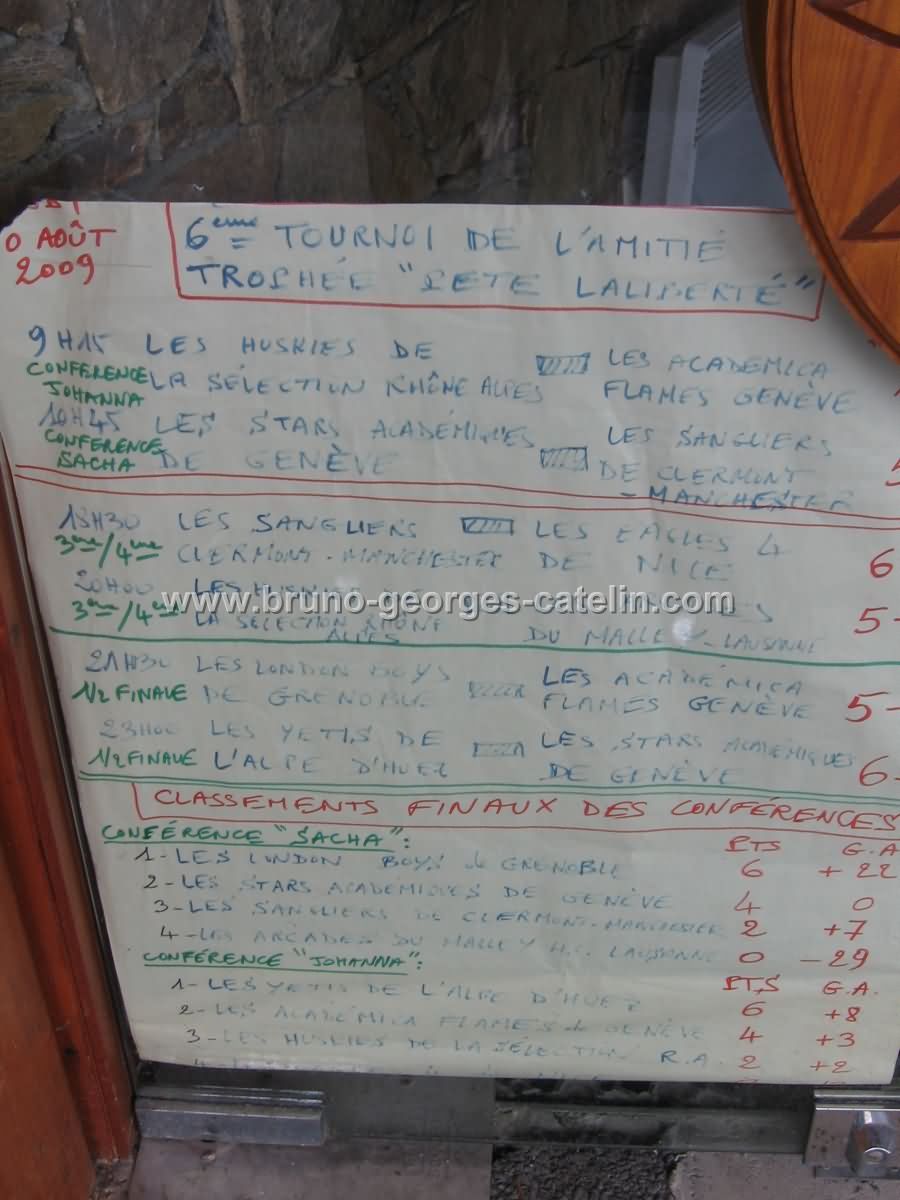 0 AOÛT
2009
6ème TOURNOI DE L'AMITIÉ
TROPHÉE "PETE LALIBERTÉ"
9H15 LES HUSKIES DE LES ACADEMICA
CONFERENCE JOHANNA LA SÉLECTION RHÔNE ALPES FLAMES GENÈVE
10H45 LES STARS ACADÉMIQUES LES SANGLIERS
CONFERENCE SACHA DE GENÈVE DE CLERMONT
- MANCHESTER
18H30 LES SANGLIERS LES EAGLES 4
3ème/4ème CLERMONT-MANCHESTER DE NICE 6
20H00 LES HUSKIES
3ème/4ème LA SÉLECTION RHÔNE DU MALLEY-LAUSANNE 5-
ALPES
www.bruno-georges-catelin.com
21H30 LES LONDON BOYS LES ACADÉMICA
1/2 FINALE DE GRENOBLE FLAMES GENÈVE 5-
23H00 LES YETIS DE LES STARS ACADÉMIQUES
1/2 FINALE L'ALPE D'HUEZ DE GENÈVE 6-
CLASSEMENTS FINAUX DES CONFÉRENCES
CONFÉRENCE "SACHA": PTS G.A
1- LES LONDON BOYS de GRENOBLE 6 +22
2- LES STARS ACADÉMIQUES DE GENÈVE 4 0
3- LES SANGLIERS DE CLERMONT-MANCHESTER 2 +7
4- LES ARCADES DU MALLEY H.C. LAUSANNE 0 -29
CONFÉRENCE "JOHANNA": PTS G.A.
1- LES YETIS DE L'ALPE D'HUEZ 6 +8
2- LES ACADÉMICA FLAMES de GENÈVE 4 +3
3- LES HUSKIES DE LA SÉLECTION R.A. 2 +2